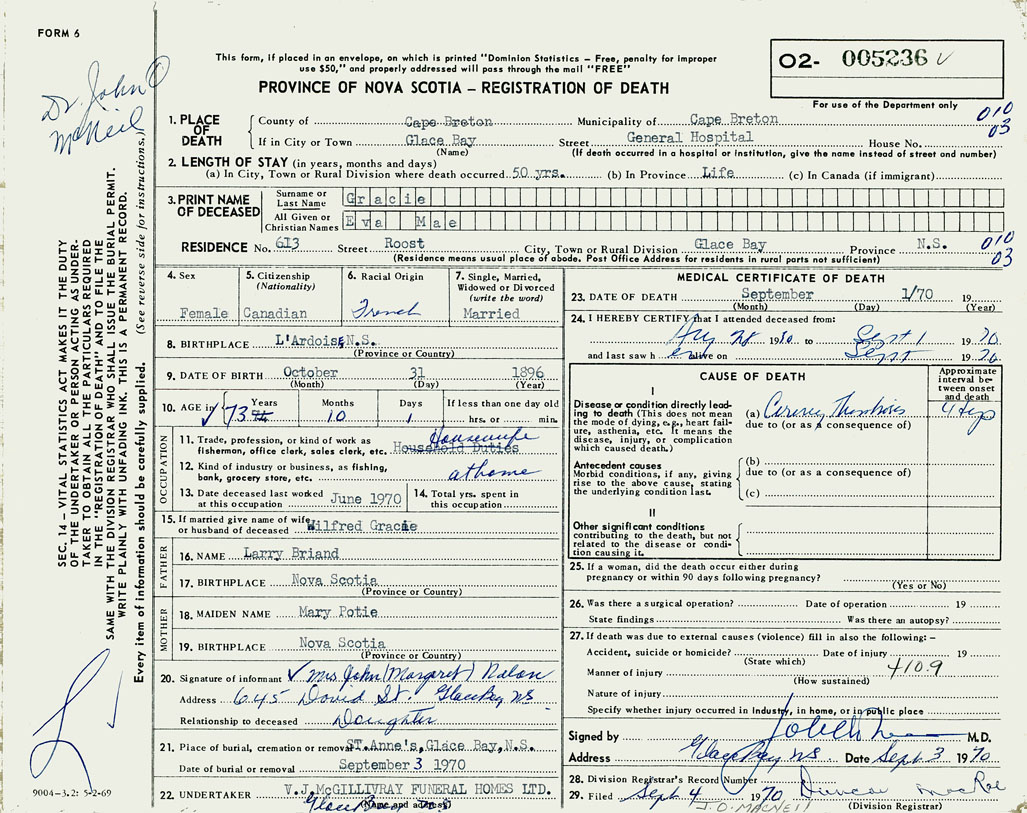 FORM 6
This form, if placed in an envelope, on which is printed "Dominion Statistics – Free, penalty for improper
use $50," and properly addressed will pass through the mail "FREE"
O2- 005236
For use of the Department only
PROVINCE OF NOVA SCOTIA – REGISTRATION OF DEATH
Dr. John
McNeil
010
03
1. PLACE OF DEATH
County of Cape Breton Municipality of Cape Breton
If in City or Town Glace Bay Street General Hospital House No.
(Name) (If death occurred in a hospital or institution, give the name instead of street and number)
2. LENGTH OF STAY (in years, months and days)
(a) In City, Town or Rural Division where death occurred 50 yrs. (b) In Province Life (c) In Canada (if immigrant)
3. PRINT NAME OF DECEASED
Surname or Last Name Gracie
All Given or Christian Names Eva Mae
RESIDENCE No. 613 Street Roost City, Town or Rural Division Glace Bay Province N.S.
(Residence means usual place of abode. Post Office Address for residents in rural parts not sufficient)
010
03
4. Sex
Female
5. Citizenship
(Nationality)
Canadian
6. Racial Origin
French
7. Single, Married, Widowed or Divorced
(write the word)
Married
8. BIRTHPLACE L'Ardoise, N.S.
(Province or Country)
9. DATE OF BIRTH October 31 1896
(Month) (Day) (Year)
10. AGE in Years Months Days If less than one day old
73 10 1 hrs. or min.
OCCUPATION
11. Trade, profession, or kind of work as
fisherman, office clerk, sales clerk, etc. Household Duties Housewife
12. Kind of industry or business, as fishing,
bank, grocery store, etc. at home
13. Date deceased last worked
at this occupation June 1970
14. Total yrs. spent in
this occupation
15. If married give name of wife
or husband of deceased Wilfred Gracie
FATHER
16. NAME Larry Briand
17. BIRTHPLACE Nova Scotia
(Province or Country)
MOTHER
18. MAIDEN NAME Mary Potie
19. BIRTHPLACE Nova Scotia
(Province or Country)
20. Signature of informant Mrs John (Margaret) Nolan
Address 645 David St. Glace Bay NS
Relationship to deceased Daughter
21. Place of burial, cremation or removal ST. Anne's, Glace Bay, N.S.
Date of burial or removal September 3 1970
22. UNDERTAKER V.J. McGILLIVRAY FUNERAL HOMES LTD.
(Name and address)
Glace Bay
MEDICAL CERTIFICATE OF DEATH
23. DATE OF DEATH September 1/70 19
(Month) (Day) (Year)
24. I HEREBY CERTIFY that I attended deceased from:
19 to Sept 1 1970
and last saw h er alive on Sept 1970
CAUSE OF DEATH
Approximate interval between onset and death
I
Disease or condition directly leading to death (This does not mean the mode of dying, e.g., heart failure, asthenia, etc. It means the disease, injury, or complication which caused death.)
(a) Coronary Thrombosis
due to (or as a consequence of)
Antecedent causes
Morbid conditions, if any, giving rise to the above cause, stating the underlying condition last.
(b)
due to (or as a consequence of)
(c)
II
Other significant conditions
contributing to the death, but not related to the disease or condition causing it.
25. If a woman, did the death occur either during
pregnancy or within 90 days following pregnancy?
(Yes or No)
26. Was there a surgical operation? Date of operation 19
State findings Was there an autopsy?
27. If death was due to external causes (violence) fill in also the following: –
Accident, suicide or homicide? Date of injury 19
(State which)
Manner of injury 4109
(How sustained)
Nature of injury
Specify whether injury occurred in Industry, in home, or in public place
Signed by M.D.
Address Glace Bay NS Date Sept 3 1970
28. Division Registrar's Record Number
29. Filed Sept 4 1970 Duncan MacRae
(Division Registrar)
J.O. MACNEIL
SEC. 14 – VITAL STATISTICS ACT MAKES IT THE DUTY
OF THE UNDERTAKER OR PERSON ACTING AS UNDER-
TAKER TO OBTAIN ALL THE PARTICULARS REQUIRED
IN THE "REGISTRATION OF DEATH" AND TO FILE THE
SAME WITH THE DIVISION REGISTRAR WHO SHALL ISSUE THE BURIAL PERMIT.
WRITE PLAINLY WITH UNFADING INK. THIS IS A PERMANENT RECORD.
Every item of information should be carefully supplied. (See reverse side for instructions.)
9004-3.2: 5-2-69